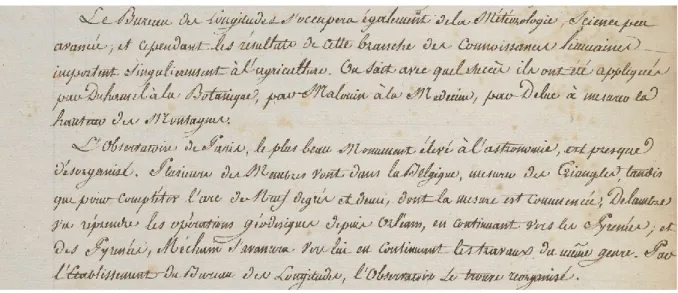 Le Bureau des Longitudes s'occupera également de la Météorologie, Science peu
avancée, et cependant les résultats de cette branche des Connoissances humaines
importent singulierement à l'agriculture. On sait avec quel succès ils ont été appliqués
par Duhamel à la Botanique, par Malouin à la Medecine, par Deluc à mesurer la
hauteur des Montagnes.
L'Observatoire de Paris, le plus beau Monument élevé à l'astronomie, est presque
désorganisé. Plusieurs des Membres vont dans la Belgique, mesurer des Triangles, tandis
que pour completter l'arc de Neuf degrés et demi, dont la mesure est commencée, Delambre
va reprendre les opérations géodesiques depuis Orléans, en continuant vers les Pyrenées; et
des Pyrenées, Méchain s'avancera vers lui en continuant les travaux du même genre. Par
l'Etablissement du Bureau des Longitudes, l'Observatoire se trouve reorganisé.